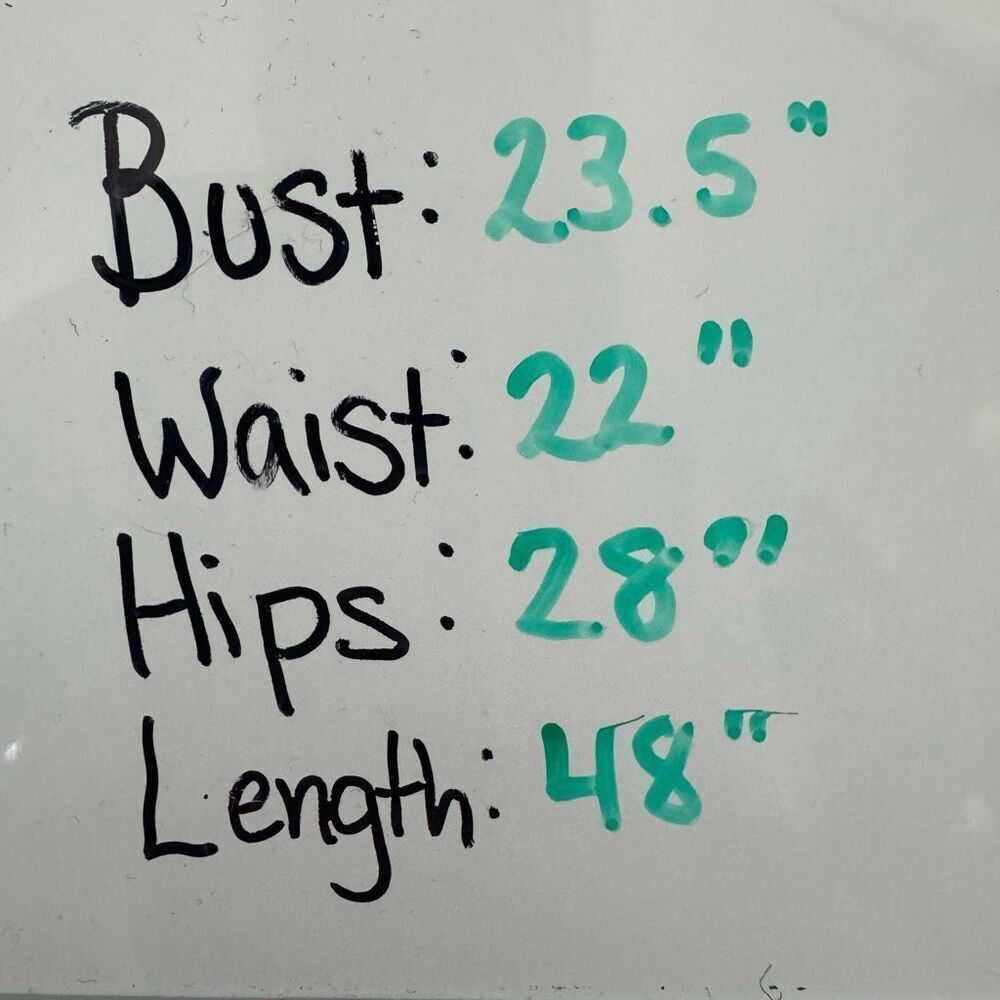 Bust: 23.5"
Waist: 22"
Hips: 28"
Length: 48"